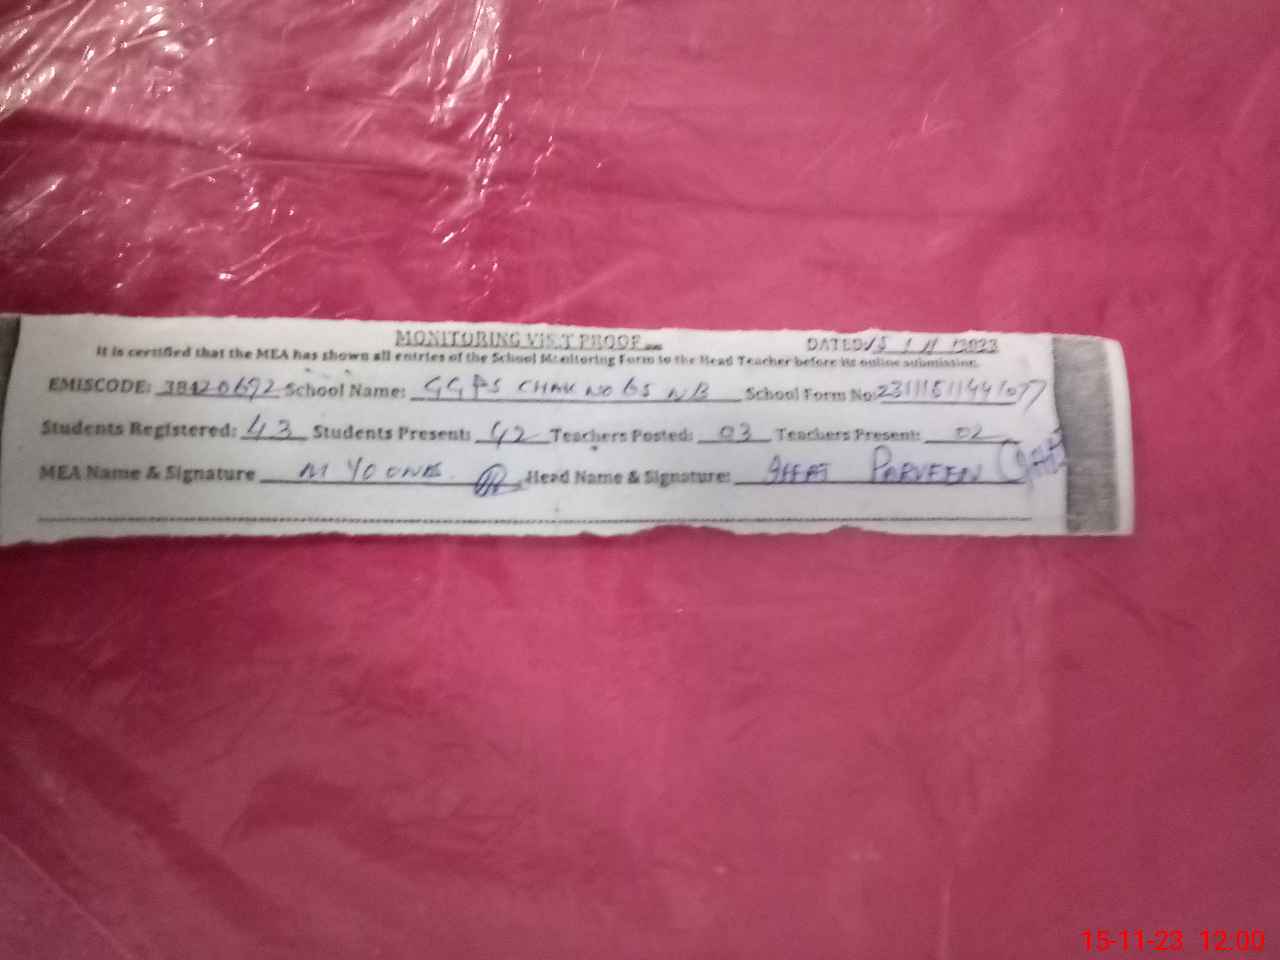 MONITORING VISIT PROOF DATED: 15 / 11 /2023
It is certified that the MEA has shown all entries of the School Monitoring Form to the Head Teacher before its online submission.
EMISCODE: 38420692 School Name: GGPS CHAK NO 65 NB School Form No:
Students Registered: 43 Students Present: 42 Teachers Posted: 03 Teachers Present: 02
MEA Name & Signature M YOUNAS Head Name & Signature: PARVEEN
15-11-23 12:00